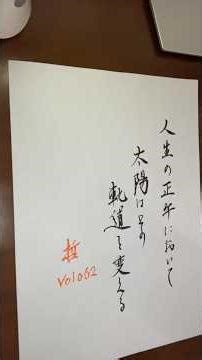 人生の正午に於いて
太陽はその
軌道を変える
哲
Vol 062